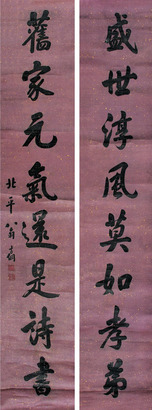 盛世淳風莫如孝弟
舊家元氣還是詩書
北平翁方綱